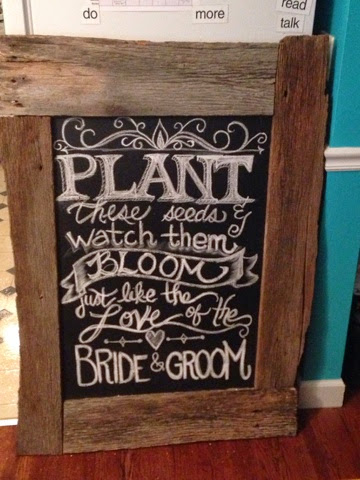 do more read
talk
PLANT
these seeds &
watch them
BLOOM
just like the
Love of the
BRIDE & GROOM